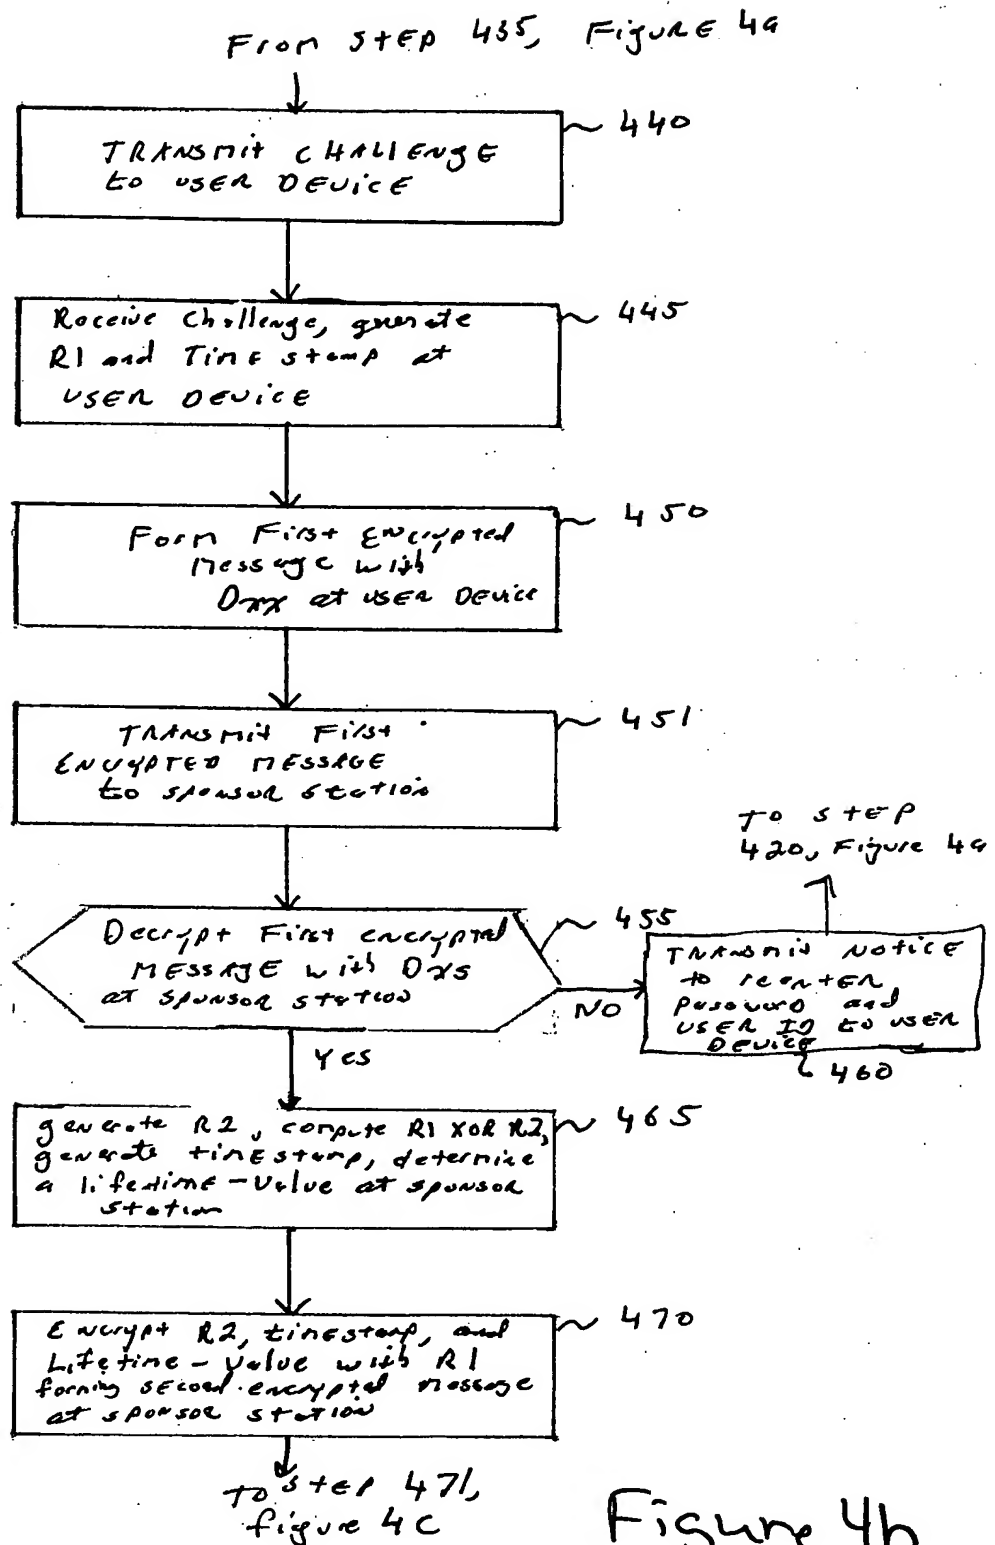 From step 435, Figure 4a
440
TRANSMit CHALLENGE
to USER DEVICE
445
Receive Challenge, generate
R1 and Time stamp at
USER DEVICE
450
Form First Encrypted
Message with
Dxx at USER DEVICE
451
TRANSMIT First
ENCYPTED MESSAGE
to sponsor station
To step
420, Figure 4a
455
Decrypt First encrypted
MESSAGE with Dxs
at sponsor station
NO
TRANSMIT NOTICE
to reenter
password and
USER ID to USER
DEVICE
460
Yes
465
generate R2, compute R1 XOR R2,
generate timestamp, determine
a lifetime-Value at sponsor
station
470
Encrypt R2, timestamp, and
Lifetime-Value with R1
forming second encrypted message
at sponsor station
To step 471,
figure 4c
Figure 4b